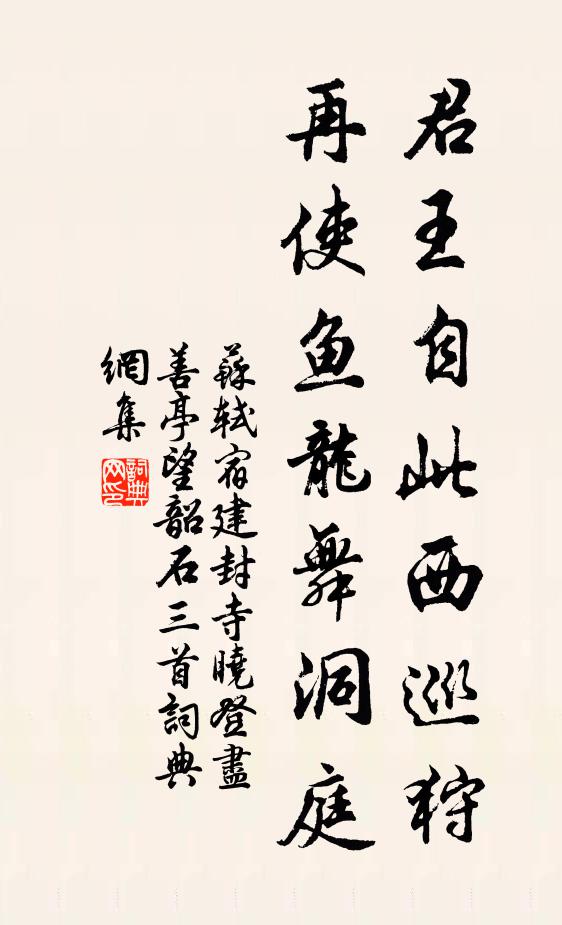 君王自此西巡狩
再使魚龍舞洞庭
蘇軾宿建封寺曉登盡
善亭望韶石三首詞典
網集
詞典
网印